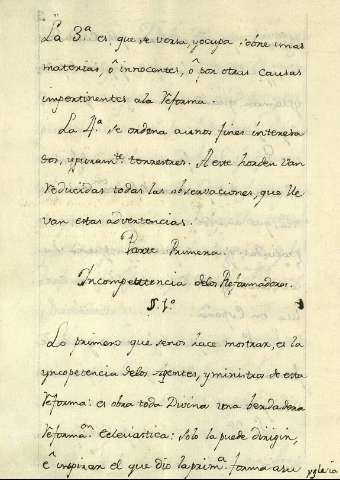 La 3.ª es, que se versa, y ocupa sobre unas
materias, ô innocentes, ô por otras causas
impertinentes a la Reforma.
La 4.ª se ordena a unos fines interesa
dos, y puram.te terrestres. A este horden van
reducidas todas las observaciones, que lle
van estas advertencias.
Parte Primera.
Incompettencia delos Reformadores.
§. 1.º
Lo primero que senos hace mostrar, es la
yncopetencia delos agentes, y ministros de esta
Reforma: es obra toda Divina una berdadera
Reforma.on Eclesiastica: solo la puede dirigir,
ê inspirar el que dio la prim.ª forma asu
yglesia